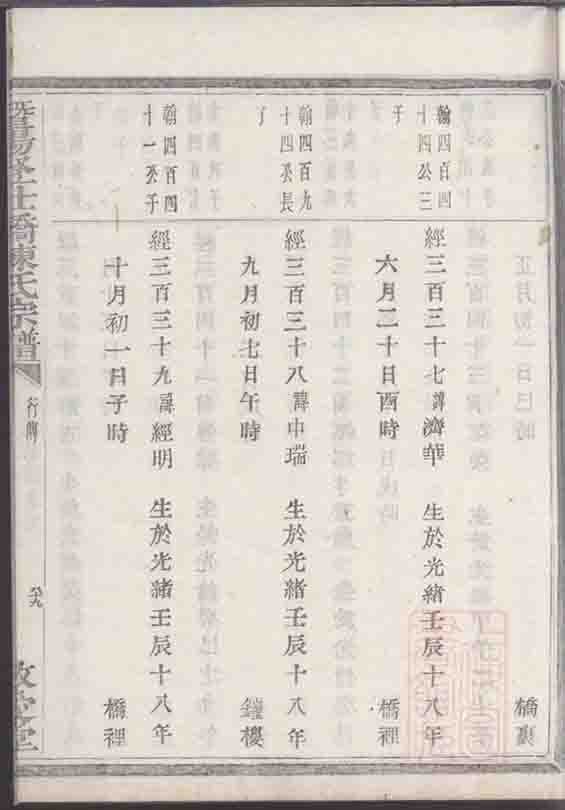 正月初一日巳時 橋裏
翰四百四
十四公三
子
經三百三十七諱濟華 生於光緒壬辰十八年
六月二十日酉時 橋裡
翰四百九
十四公長
子
經三百三十八諱中瑞 生於光緒壬辰十八年
九月初七日午時 鐘樓
翰四百四
十一公子
經三百三十九諱經明 生於光緒壬辰十八年
十月初一日子時 橋裡
暨陽
橋陳氏宗譜
行傳